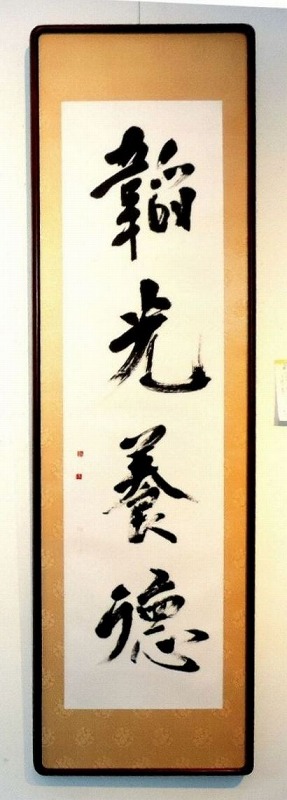 韜光養德